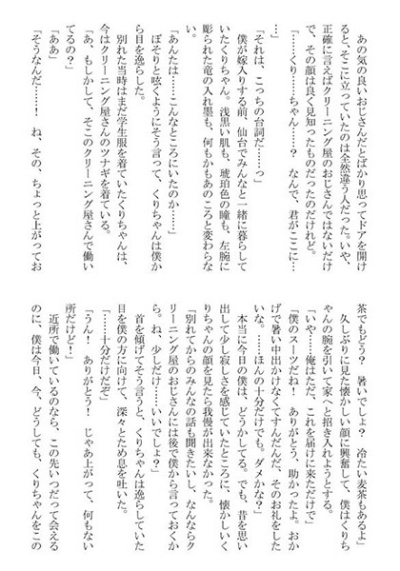 あの気の良いおじさんだとばかり思ってドアを開け
ると、そこに立っていたのは全然違う人だった。いや、
正確に言えばクリーニング屋のおじさんではないだけ
で、その顔は良く見知ったものだったのだけれど。
「……くり……ちゃん……？　なんで、君がここに…
…」
「それは、こっちの台詞だ……っ」
　僕が嫁入りする前、仙台でみんなと一緒に暮らして
いたくりちゃん。浅黒い肌も、琥珀色の瞳も、左腕に
彫られた竜の入れ墨も、何もかもあのころと変わらな
い。
「あんたは……こんなところにいたのか……」
　ぼそりと呟くようにそう言って、くりちゃんは僕か
ら目を逸らした。
　別れた当時はまだ学生服を着ていたくりちゃんは、
今はクリーニング屋さんのツナギを着ている。
「あ、もしかして、そこのクリーニング屋さんで働い
てるの？」
「ああ」
「そうなんだ……！　ね、その、ちょっと上がってお
茶でもどう？　暑いでしょ？　冷たい麦茶もあるよ」
　久しぶりに見た懐かしい顔に興奮して、僕はくりち
ゃんの腕を引いて家へと招き入れようとする。
「いや……俺はただ、これを届けに来ただけで」
「僕のスーツだね！　ありがとう、助かったよ。おか
げで暑い中出かけなくてすんだんだ、そのお礼をした
いな。……ほんの十分だけでも。ダメかな？」
　本当に今日の僕は、どうかしてる。でも、昔を思い
出して少し寂しさを感じていたところに、懐かしいく
りちゃんの顔を見たら我慢が出来なかった。
「別れてからのみんなの話も聞きたいし、なんならク
リーニング屋のおじさんには後で僕から言っておくか
ら。ね、少しだけ……いいでしょ？」
　首を傾げてそう言うと、くりちゃんは逸らしていた
目を僕の方に向けて、深々とため息を吐いた。
「……十分だけだぞ」
「うん！　ありがとう！　じゃあ上がって、何もない
所だけど！」
　近所で働いているのなら、この先いつだって会える
のに、僕は今日、今、どうしても、くりちゃんをこの